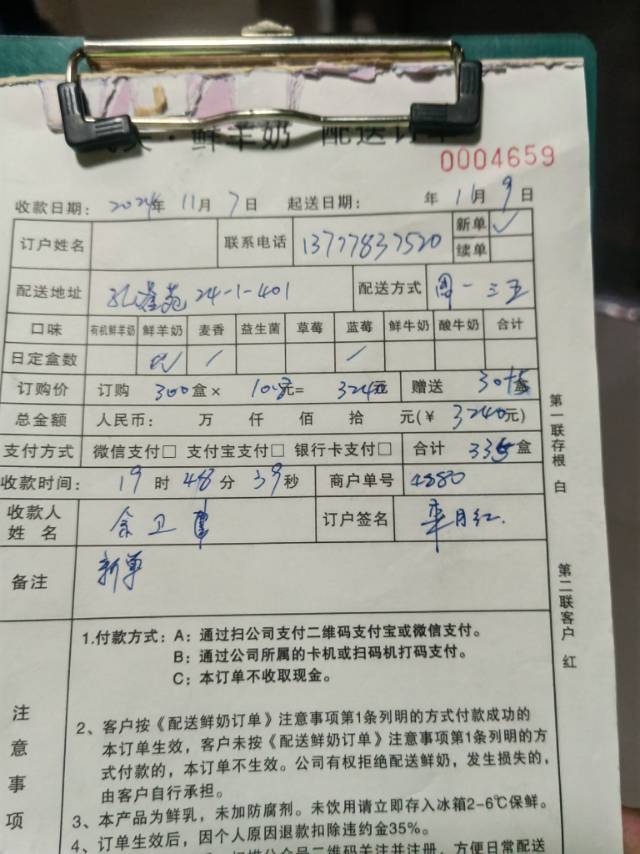 ·鲜羊奶 配送订单
0004659
收款日期： 2024年 11月 7日 起送日期： 年 11月 9日
新单 ✓
订户姓名 联系电话 13777837520 续单
配送地址 24-1-401 配送方式 周一三五
口味 有机鲜羊奶 鲜羊奶 麦香 益生菌 草莓 蓝莓 鲜牛奶 酸牛奶 合计
日定盒数 / /
订购价 订购 300盒× 元= 元 赠送 盒
总金额 人民币： 万 仟 佰 拾 元(￥ 3240元)
支付方式 微信支付□ 支付宝支付□ 银行卡支付□ 合计 335盒
收款时间： 19时 48分 39秒 商户单号 4880
收款人
姓 名 余卫 订户签名 月红
备注 新单
第一联存根 白
第二联客户 红
注意事项
1.付款方式：A：通过扫公司支付二维码支付宝或微信支付。
B：通过公司所属的卡机或扫码机打码支付。
C：本订单不收取现金。
2、客户按《配送鲜奶订单》注意事项第1条列明的方式付款成功的
本订单生效，客户未按《配送鲜奶订单》注意事项第1条列明的方
式付款的，本订单不生效。公司有权拒绝配送鲜奶，发生损失的，
由客户自行承担。
3、本产品为鲜乳，未加防腐剂。未饮用请立即存入冰箱2-6℃保鲜。
4、订单生效后，因个人原因退款扣除违约金35%。
公众号二维码关注并注册，方便日常配送